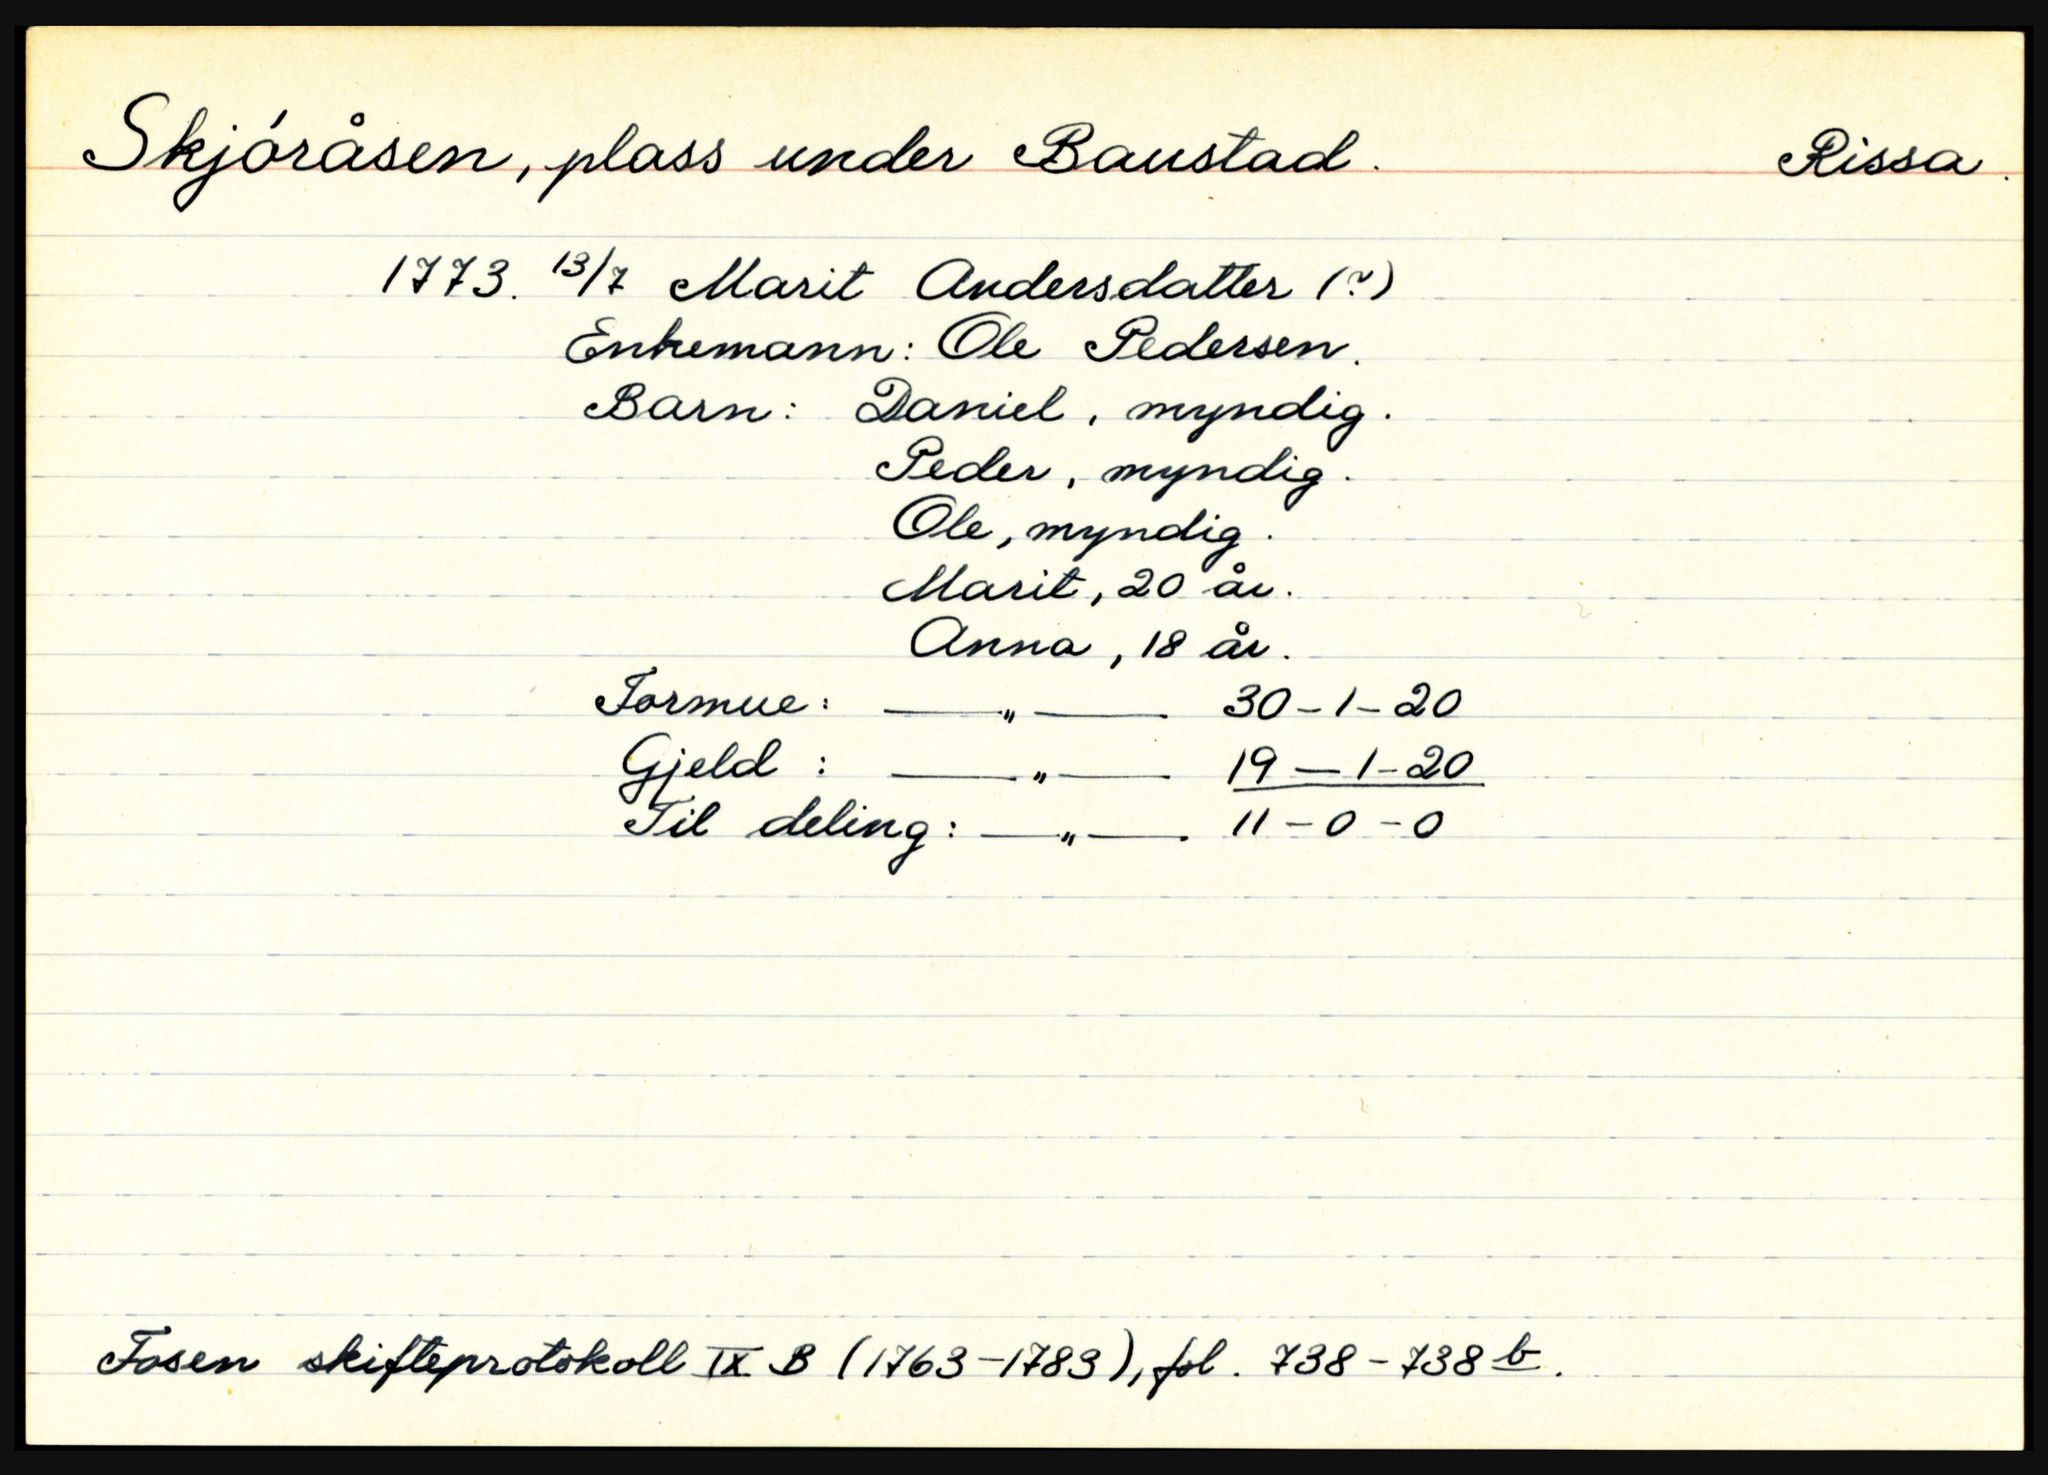 Skjóråsen, plass under Baustad. Rissa.
1773. 13/7 Marit Andersdatter (?)
Enkemann: Ole Pedersen.
Barn: Daniel, myndig.
Peder, myndig.
Ole, myndig.
Marit, 20 år.
Anna, 18 år.
Formue: —„— 30-1-20
Gjeld: —„— 19-1-20
Til deling: —„— 11-0-0
Fosen skifteprotokoll IX B (1763-1783), fol. 738-738 b.